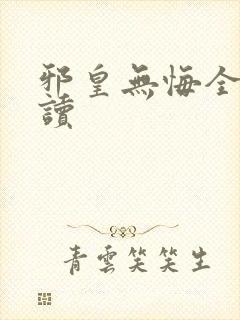 邪皇無悔全
讀
青雲笑笑生